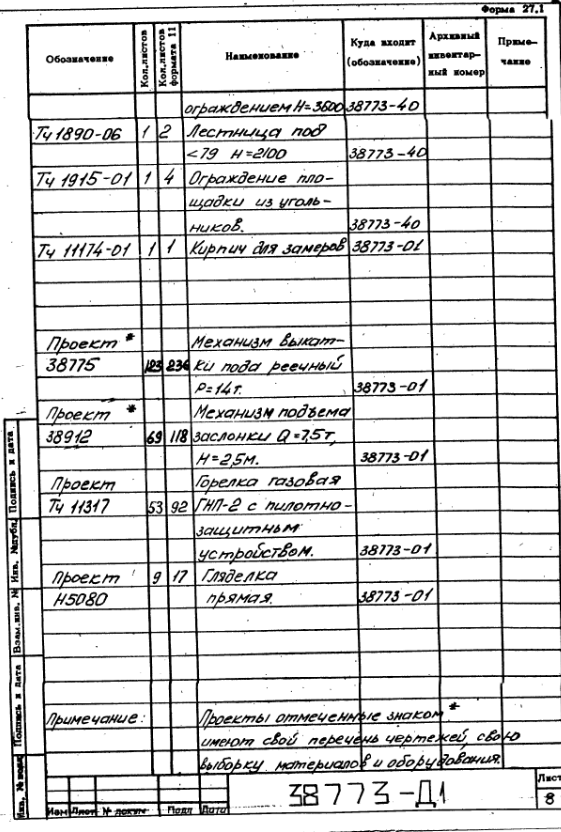 Форма 27.1
Обозначение Кол.листов Кол.листов формата 11 Наименование Куда входит (обозначение) Архивный инвентар- ный номер Приме- чание
ограждением H=3600 38773-40
Тч 1890-06 1 2 Лестница под
<79 H=2100 38773-40
Тч 1915-01 1 4 Ограждение пло-
щадки из уголь-
ников. 38773-40
Тч 11174-01 1 1 Кирпич для замеров 38773-01
Проект * Механизм выкат-
38775 123 236 ки пода реечный
P=14т. 38773-01
Проект * Механизм подъема
38912 69 118 заслонки Q=7,5т,
H=2,5м. 38773-01
Проект Горелка газовая
Тч 11317 53 92 ГНП-2 с пилотно-
защитным
устройством. 38773-01
Проект 9 17 Гляделка
Н5080 прямая. 38773-01
Примечание: Проекты отмеченные знаком *
имеют свой перечень чертежей, свою
выборку материалов и оборудования.
Инв. № подл Подпись и дата Взам.инв. № Инв. №дубл. Подпись и дата
Изм Лист № докум Подп Дата
38773-Д1
Лист
8